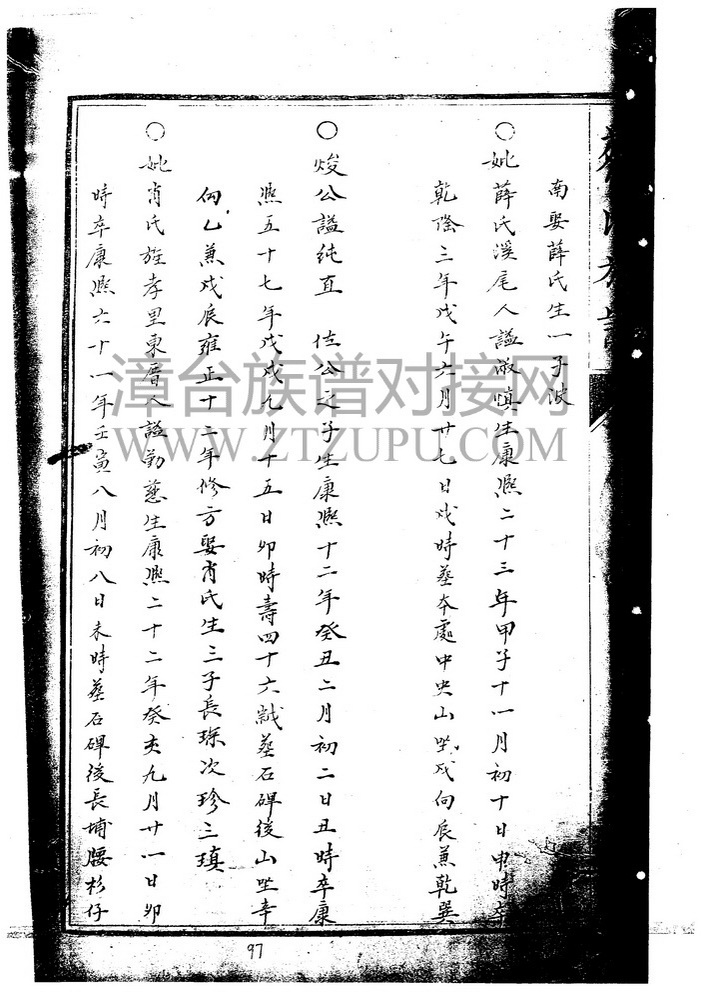 南娶薛氏生一子波
○妣薛氏溪尾人謚淑慎生康熙二十三年甲子十一月初十日申時卒
乾隆三年戊午六月廿七日戌時墓本處中央山坐戌向辰兼乾巽
○焌公謚純直 位公之子生康熙十二年癸丑二月初二日丑時卒康
熙五十七年戊戌九月十五日卯時壽四十六歲墓石碑後山坐辛
向乙兼戌辰雍正十二年修方娶肖氏生三子長琛次珍三瑱
○妣肖氏旌孝里東厝人謚勤慈生康熙二十二年癸亥九月廿一日卯
時卒康熙六十一年壬寅八月初八日未時墓石碑後長埔腰杉仔
漳台族谱对接网
WWW.ZTZUPU.COM
97